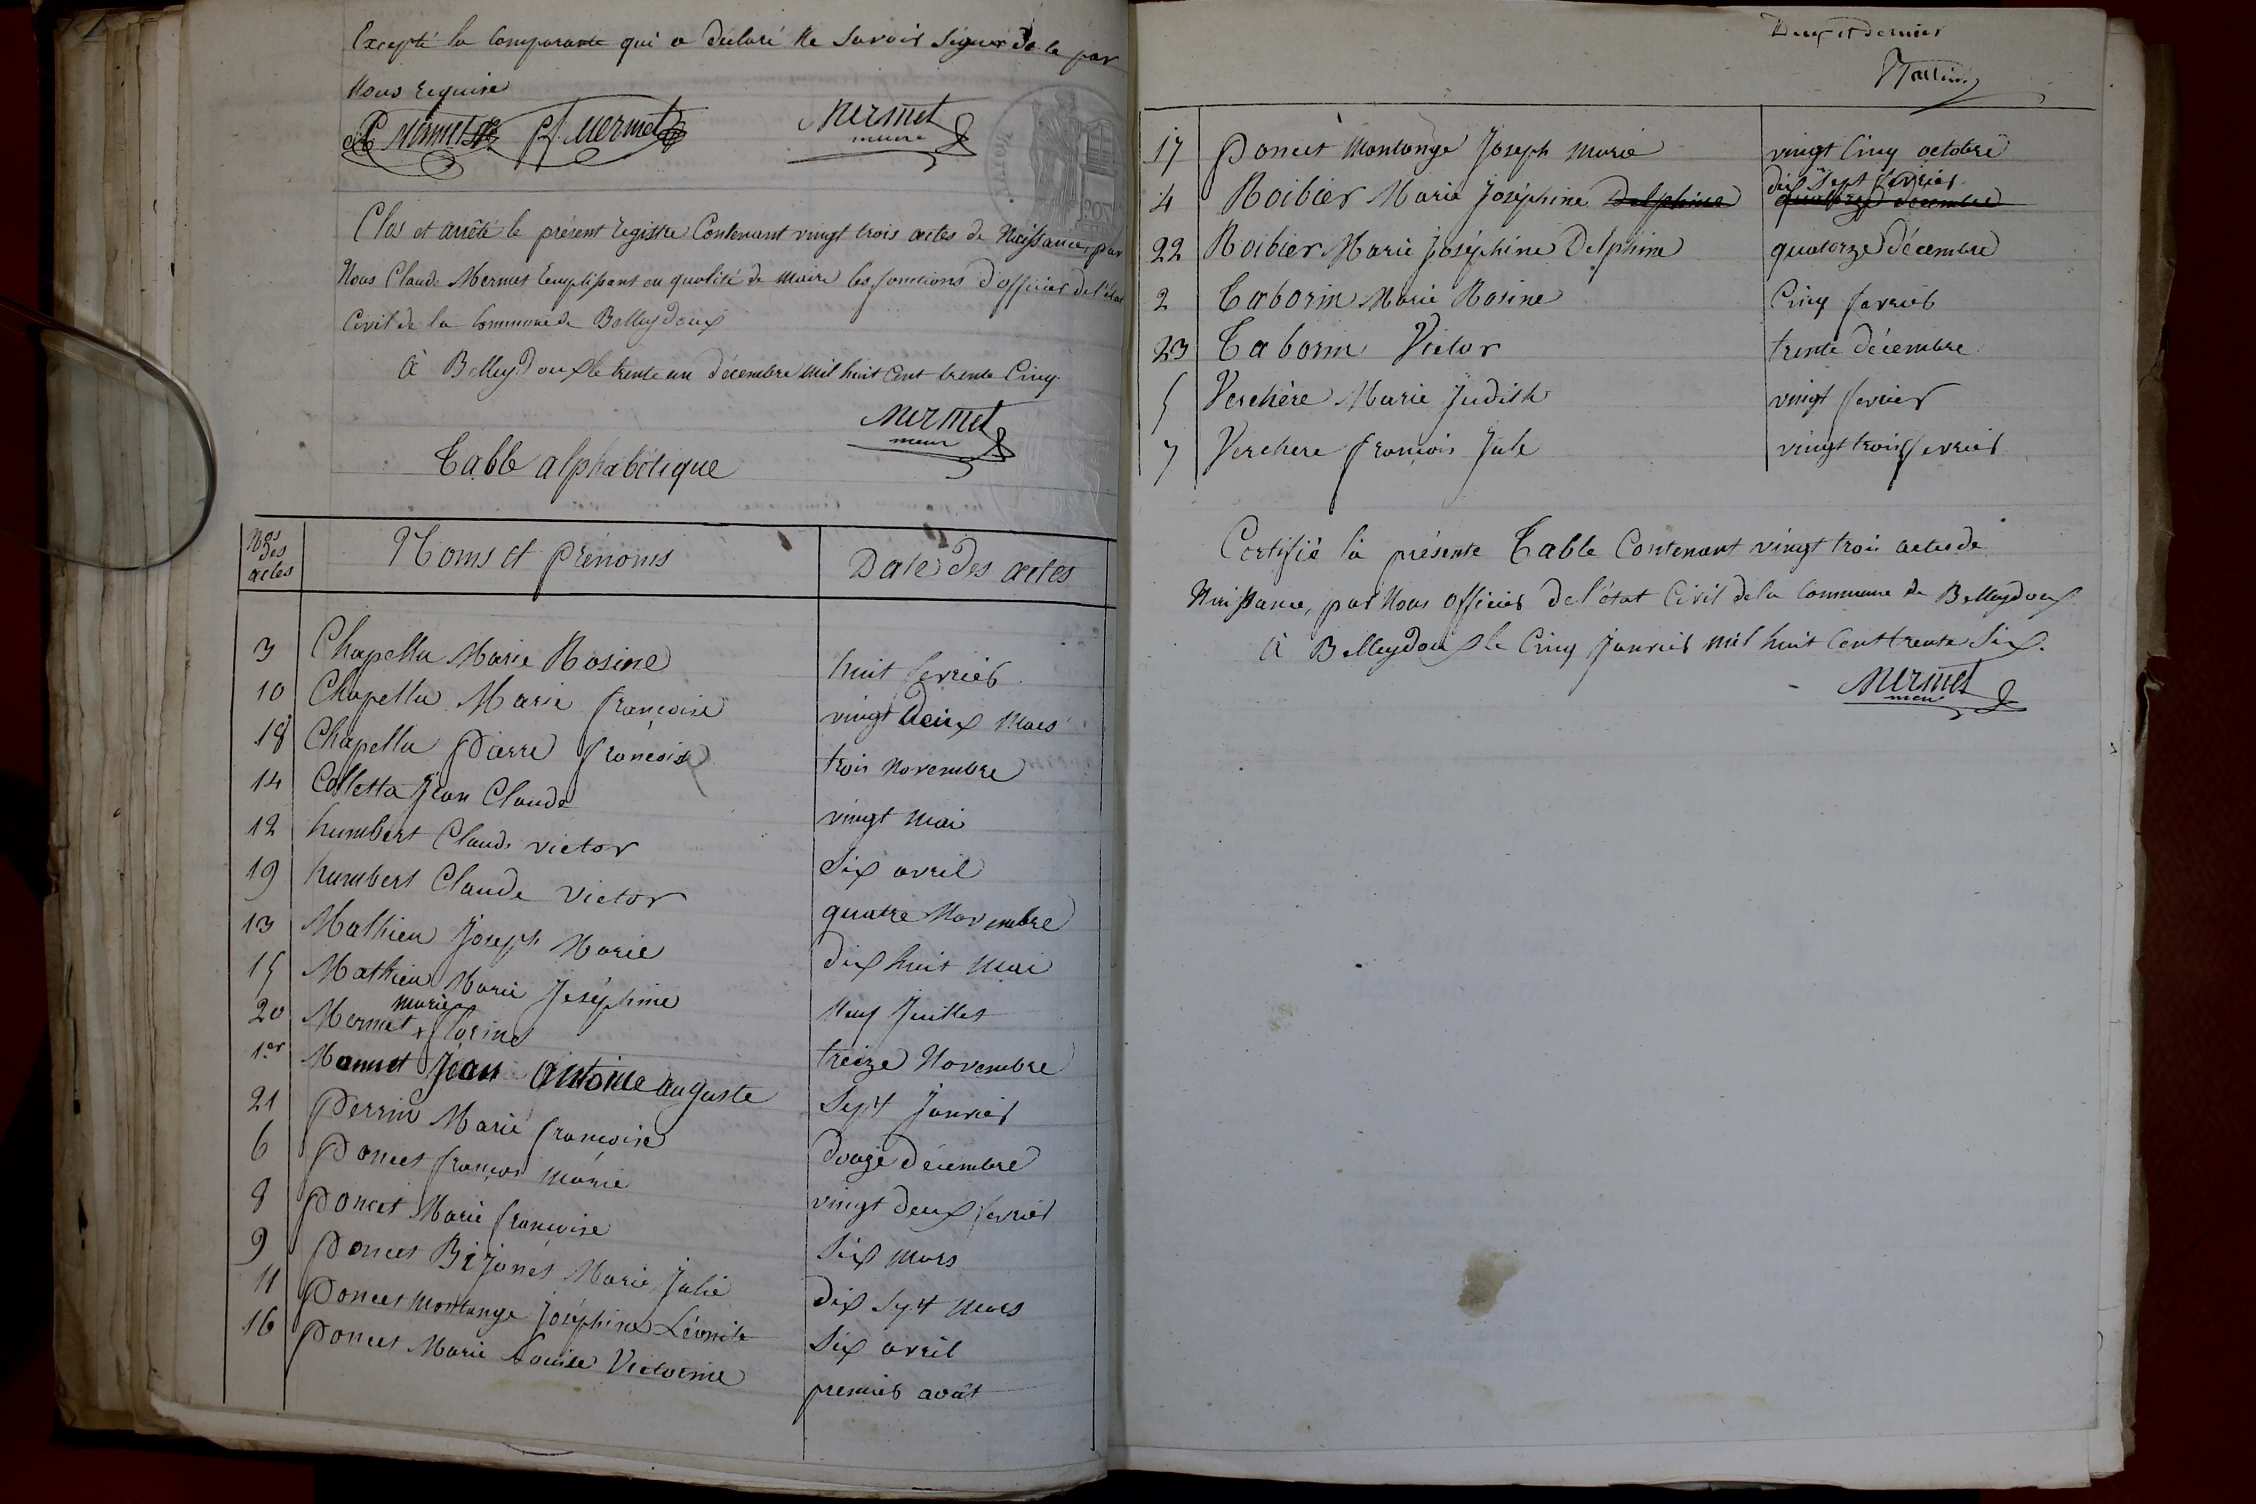 Excepté la Comparante qui a déclaré Ne Savoir Signer de ce par
Nous Requise
Mermet
Mermet
maire
Clos et arrêté le présent Registre Contenant vingt trois actes de Naissance, par
Nous Claude Mermet Remplissant en qualité de Maire les fonctions d'officier de l'état
Civil de la Commune de Belleydoux
à Belleydoux le trente un décembre mil huit Cent trente Cinq.
Mermet
maire
Table alphabétique
Nos des actes
Noms et prénoms
Date des actes
3 Chapella Marie Rosine huit fevrier
10 Chapella Marie françoise vingt deux Mars
18 Chapella Pierre françois trois Novembre
14 Colletta Jean Claude vingt Mai
12 humbert Claude victor Six avril
19 humbert Claude victor quatre Novembre
13 Mathieu Joseph Marie dix huit Mai
15 Mathieu Marie Joséphine Neuf Juillet
20 Mermet marie florine treize Novembre
1er Mermet Jean antoine auguste Sept Janvier
21 Perrin Marie françoise douze décembre
6 Poncet françois Marie vingt deux fevrier
8 Poncet Marie françoise Six Mars
9 Poncet Bijonet Marie Julie dix Sept Mars
11 Poncet Montange Joséphine Léonile Six avril
16 Poncet Marie Louise Victorine premier août
Deux et dernier
17 Poncet Montange Joseph Marie vingt Cinq octobre
4 Roibier Marie Joséphine Delphine dix Sept fevrier quatorze décembre
22 Roibier Marie Joséphine Delphine quatorze décembre
2 Taborin Marie Rosine Cinq fevrier
23 Taborin Victor trente décembre
5 Verchère Marie Judith vingt fevrier
7 Verchere françois Jule vingt trois fevrier
Certifié la présente Table Contenant vingt trois actes de
Naissance, par Nous officier de l'état Civil de la Commune de Belleydoux
à Belleydoux le Cinq Janvier mil huit Cent trente Six.
Mermet
maire